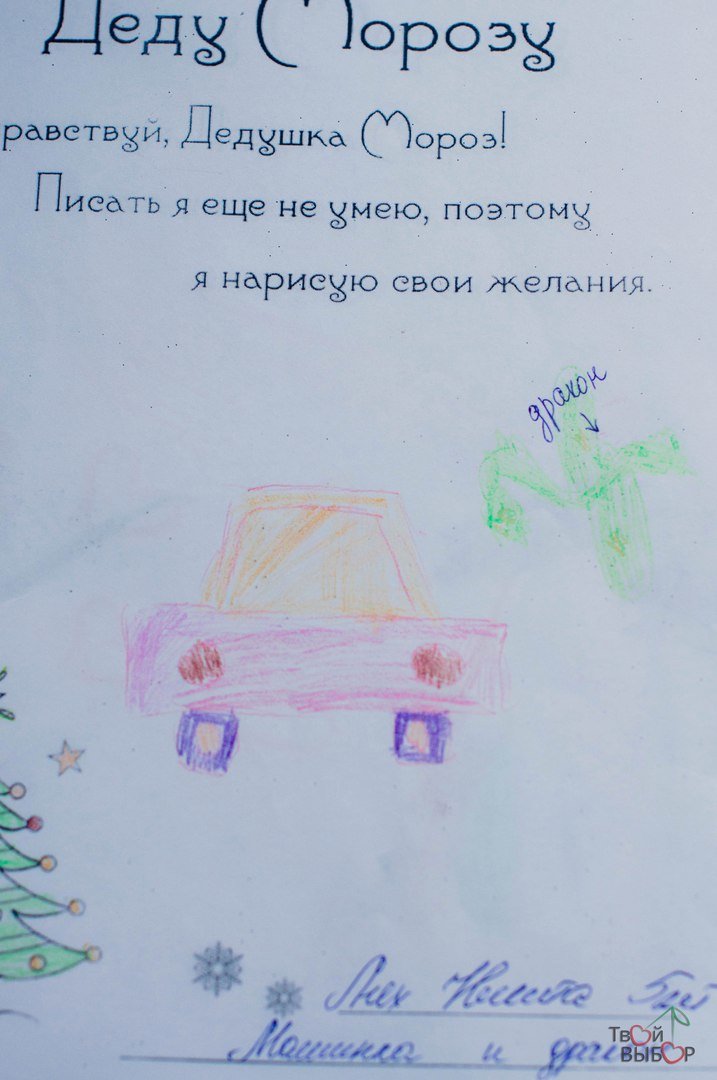 Деду Морозу
равствуй, Дедушка Мороз!
Писать я еще не умею, поэтому
я нарисую свои желания.
дракон
Никита
Машинка и драк
Твой
ВЫБОР